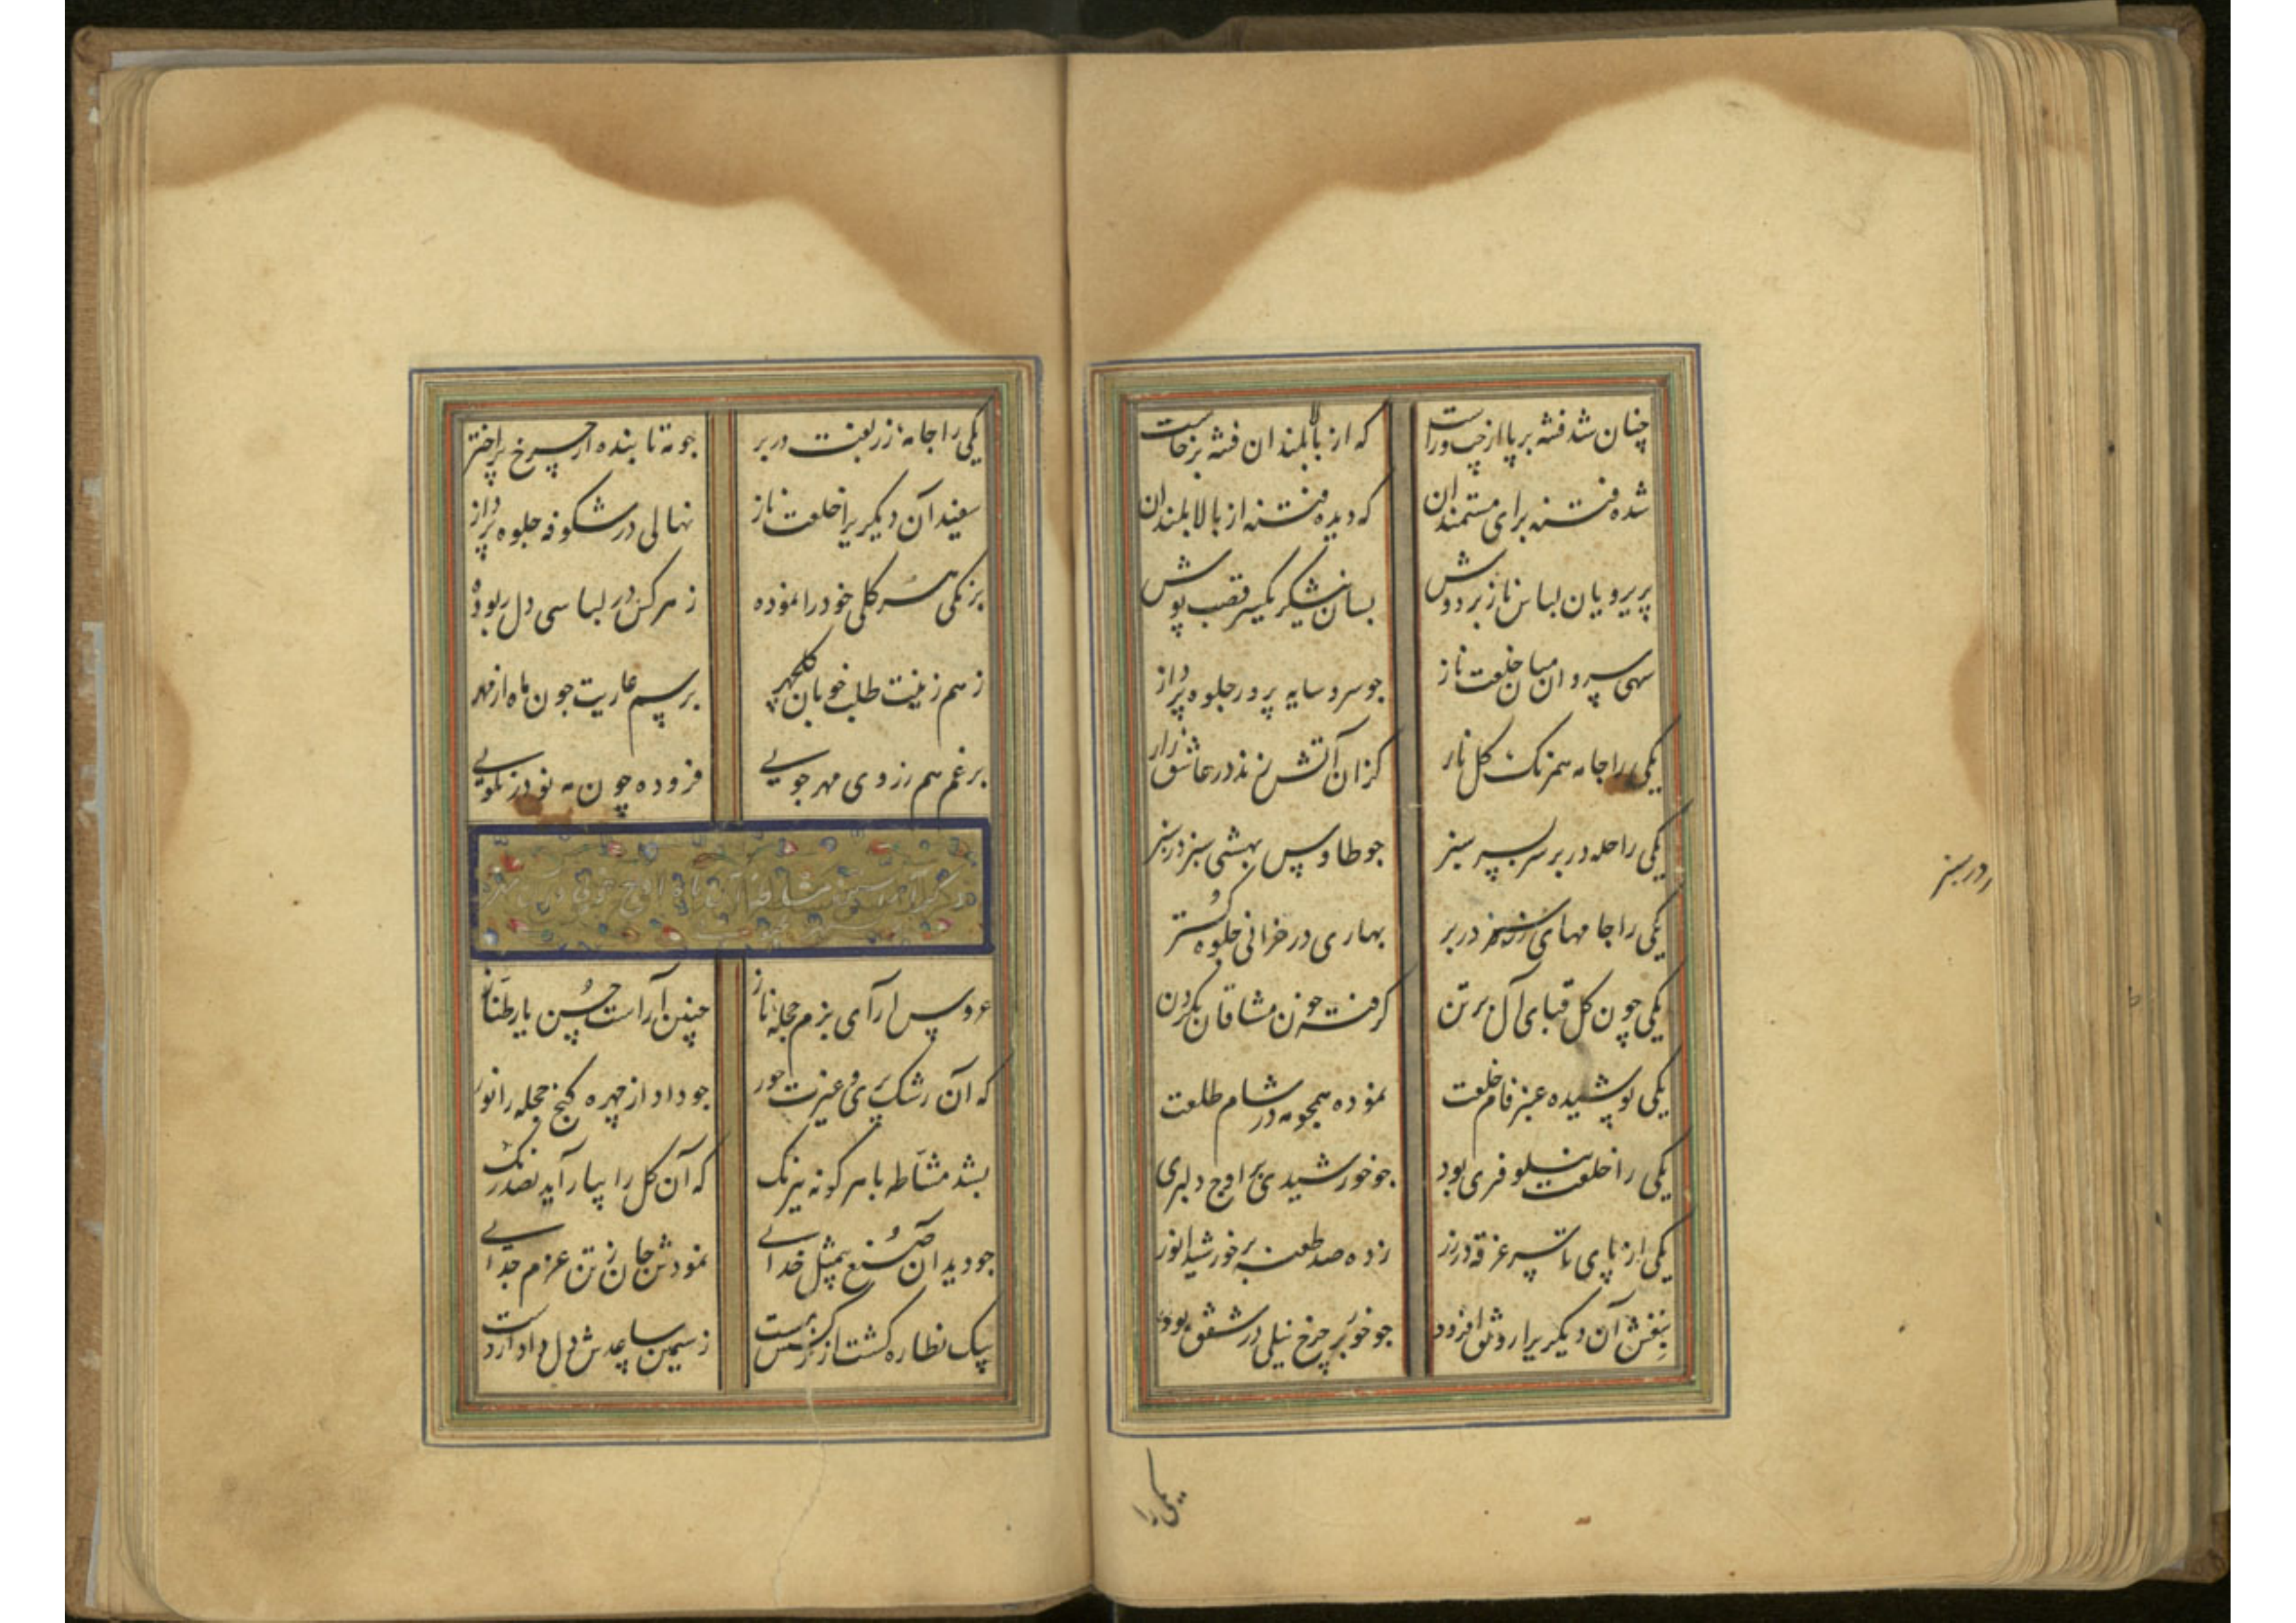 چنان شد فتنه برپا از چپ و راست که از بالابلندان فتنه برخاست
شده فتنه برای مستمندان که دیده فتنه از بالابلندان
پریرویان لباس ناز بر دوش بسان نیشکر یکسر قصب پوش
سهی سروان میان خلعت ناز جو سرو سایه پرور جلوه پرداز
یکی را جامه همرنک کل نار کزان آتش زند در عاشق زار
یکی را حله در بر سر بسر سبز جو طاوس بهشتی سبز در سبز
ردر سبز
یکی را جامهای زرد در بر بهاری در خزانی جلوه کستر
یکی چون کل قبای آل بر تن کرفته خون مشتاقان بکردن
یکی پوشیده عنبر فام خلعت نموده همچو مه در شام طلعت
یکی را خلعت نیلوفری بود جو خورشیدی بر اوج دلبری
یکی از پای تا سر غرقه در زر زده صد طعنه بر خورشید انور
بنفش آن دیکریرا رونق افزود جو خور بر چرخ نیلی در شفق بود
یکی را
یکی را جامه زربفت در بر جو مه تابنده از چرخ پر اختر
سفید آن دیکریرا خلعت ناز نهالی در شکوفه جلوه پرداز
برنکی هر کلی خود را نموده ز هر کس در لباسی دل ربوده
ز هم زینت طلب خوبان کلچهر برسم عاریت جون ماه از مهر
برغم هم ز روی مهر جویی فزوده چون مه نو در نکویی
آراستن مشاطه آن ماه اوج خوبی
عروس ارآی بزم حجله ناز چنین آراست حسن یار طناز
که آن رشک پری و غیرت حور جو داد از چهره کنج حجله را نور
بشد مشاطه با هر کونه نیرنک که آن کل را بیاراید بصد رنک
جو دید آن صنع بیمثل خدایی نمودش جان ز تن عزم جدایی
بیک نظاره کشت از نرکسش مست ز سیمین ساعدش دل داد از دست